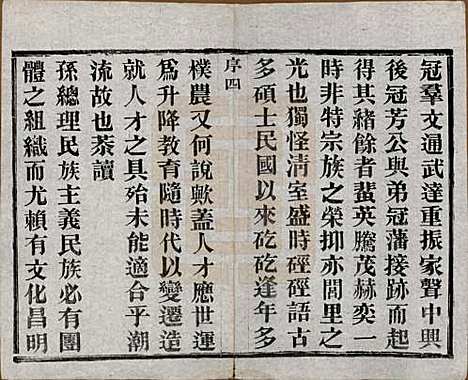 冠羣文通武達重振家聲中興
後冠芳公與弟冠藩接跡而起
得其緒餘者蜚英騰茂赫奕一
時非特宗族之榮抑亦閭里之
光也獨怪清室盛時硜硜語古
多碩士民國以來矻矻逢年多
序四
樸農又何說歟蓋人才應世運
爲升降教育隨時代以變遷造
就人才之具殆未能適合乎潮
流故也恭讀
孫總理民族主義民族必有團
體之組織而尤賴有文化昌明